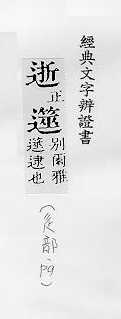 經典文字辨證書
逝正
遾別爾雅
遾逮也
(辵部,p9)